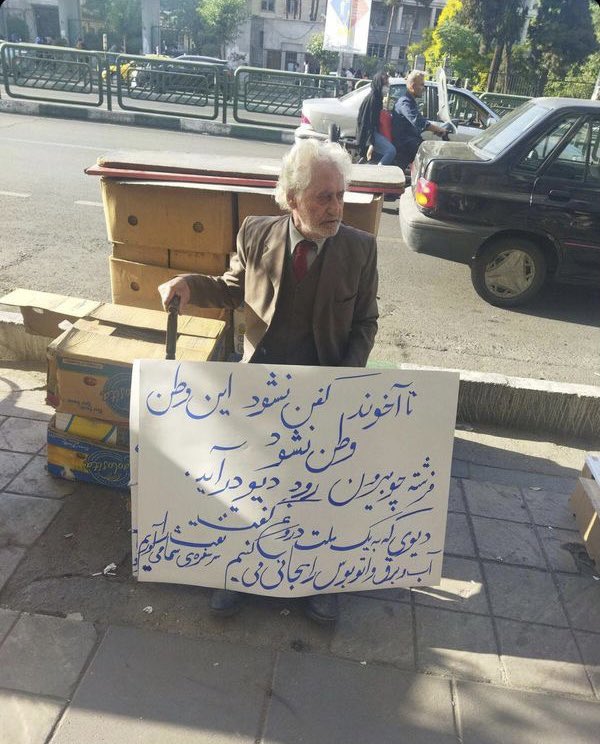 تا آخوند کفن نشود این وطن
وطن نشود
فرشته چو بیرون رود دیو درآید.
دیوی که به یک ملت دروغ گفت
آب و برق و اتوبوس را مجانی می کنیم